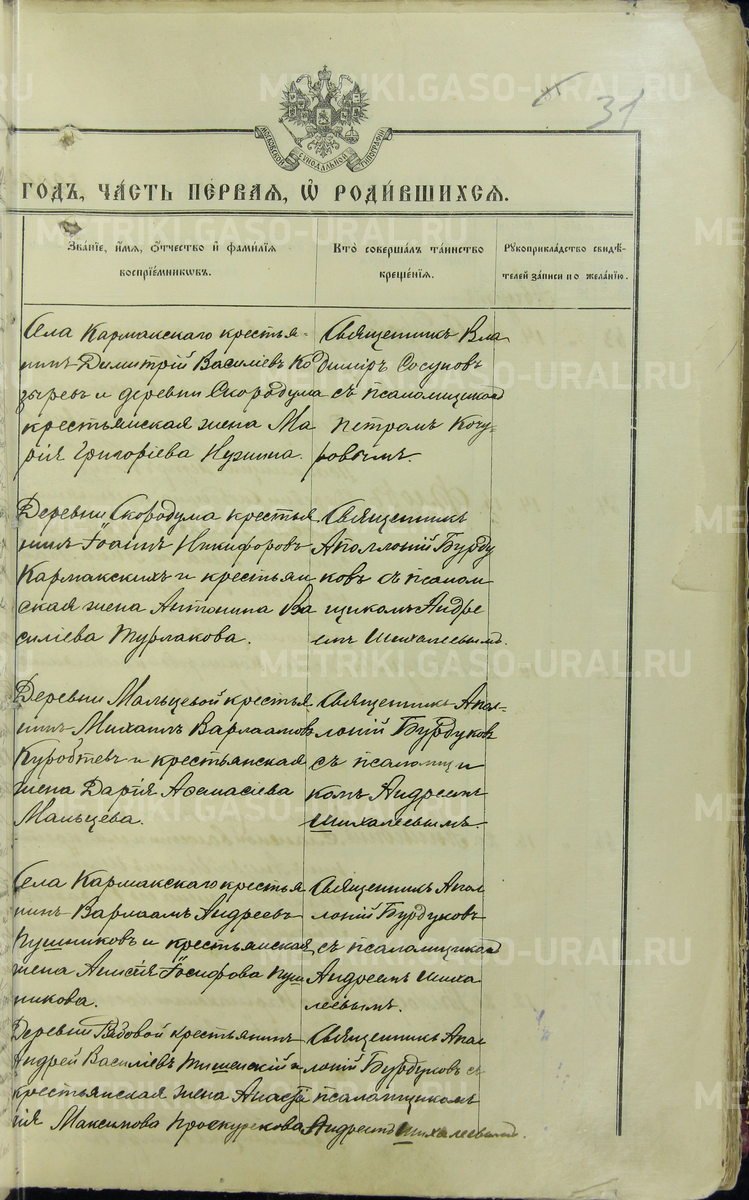 31
МОСКОВСКОЙ СѴНОДАЛЬНОЙ ТИПОГРАФІИ
ГОДЪ, ЧАСТЬ ПЕРВАЯ, Ѡ РОДИВШИХСЯ.
Званіе, имя, отчество и фамилія воспріемниковъ.
Кто совершалъ таинство крещенія.
Рукоприкладство свидѣтелей записи по желанію.
Села Кармакскаго крестья-
нинъ Димитрій Василіевъ Ко
зыревъ и деревни Скородума
крестьянская жена Ма
рія Григоріева Нужина.
Священникъ Вла
димиръ Сосуновъ
съ псаломщикомъ
Петромъ Кочу-
ровымъ.
Деревни Скородума крестья
нинъ Іоаннъ Никифоровъ
Кармакскихъ и крестьян
ская жена Антонина Ва
силіева Турлакова.
Священникъ
Аполлоній Бурду
ковъ съ псалом
щикомъ Андре
емъ Шихалеевымъ.
Деревни Мальцевой крестья
нинъ Михаилъ Варлаамовъ
и крестьянская
жена Дарія Афанасіева
Мальцева.
Священникъ Апол-
лоній Бурдуковъ
съ псаломщи
комъ Андреемъ
Шихалеевымъ.
Села Кармакскаго крестья
нинъ Варлаамъ Андреевъ
Пушниковъ и крестьянская
жена Анисія Іосифова Пуш
никова.
Священникъ Апол
лоній Бурдуковъ
съ псаломщикомъ
Андреемъ Шиха
леевымъ.
Деревни Рядовой крестьянинъ
Андрей Василіевъ Тишенскій и
крестьянская жена Анаста
сія Максимова Проскурекова
Священникъ Апол
лоній Бурдуковъ съ
псаломщикомъ
Андреемъ Шихалеевымъ.
METRIKI.GASO-URAL.RU